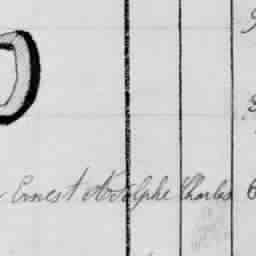 Ernest Adolphe Charles 6